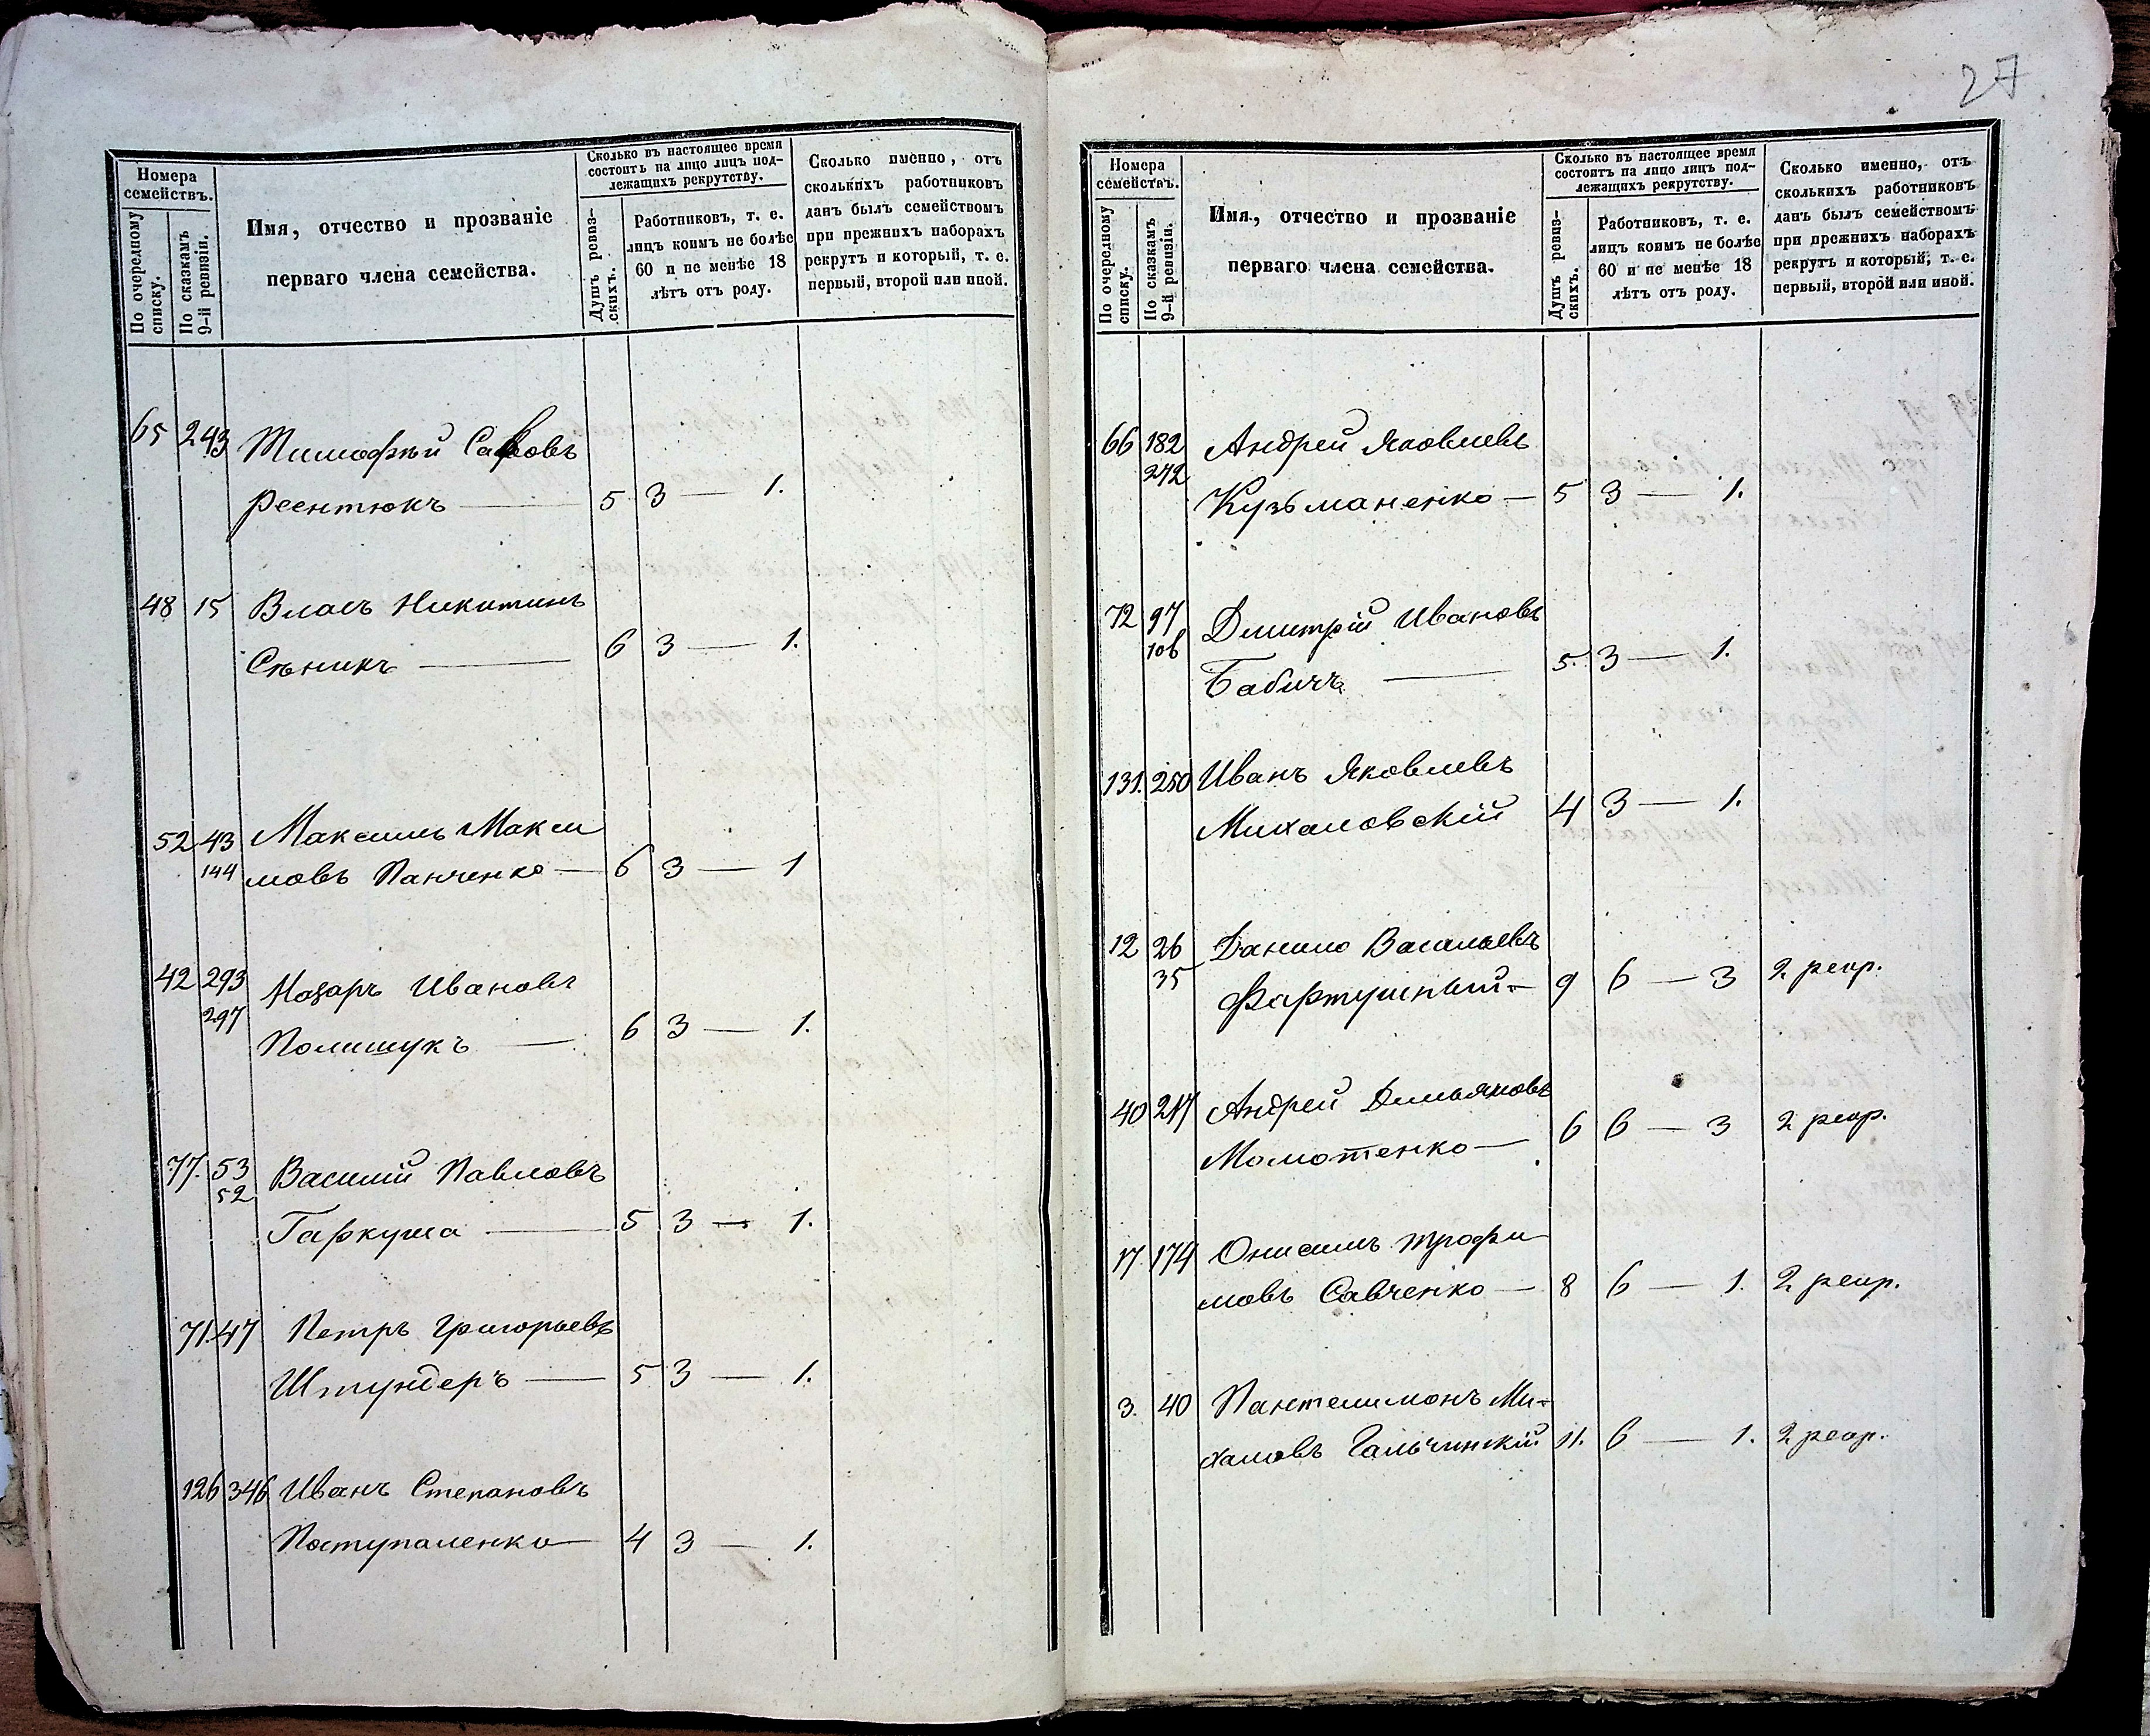 27
Номера
семействъ.
По очередному
списку.
По сказкамъ
9-й ревизіи.
Имя, отчество и прозваніе
перваго члена семейства.
Сколько въ настоящее время
состоитъ на лицо лицъ под-
лежащихъ рекрутству.
Душъ ревиз-
скихъ.
Работниковъ, т. е.
лицъ коимъ не болѣе
60 и не менѣе 18
лѣтъ отъ роду.
Сколько именно, отъ
сколькихъ работниковъ
данъ былъ семействомъ
при прежнихъ наборахъ
рекрутъ и который, т. е.
первый, второй или иной.
65 243 Тимофѣй Савовъ
Реентюкъ — 5 3 — 1.
48 15 Власъ Никитинъ
Сѣникъ — 6 3 — 1.
52 43 Максимъ Макси
144 мовъ Панченко — 6 3 — 1
42 293 Назаръ Ивановъ
297
Полищукъ — 6 3 — 1.
77. 53 Василій Павловъ
52
Гаркуша — 5 3 — 1.
71. 47 Петръ Григорьевъ
Штундеръ — 5 3 — 1.
126 346 Иванъ Степановъ
Поступаленко — 4 3 — 1.
Номера
семействъ.
По очередному
списку.
По сказкамъ
9-й ревизіи.
Имя, отчество и прозваніе
перваго члена семейства.
Сколько въ настоящее время
состоитъ на лицо лицъ под-
лежащихъ рекрутству.
Душъ ревиз-
скихъ.
Работниковъ, т. е.
лицъ коимъ не болѣе
60 и не менѣе 18
лѣтъ отъ роду.
Сколько именно, отъ
сколькихъ работниковъ
данъ былъ семействомъ
при прежнихъ наборахъ
рекрутъ и который, т. е.
первый, второй или иной.
66 182 Андрей Яковлевъ
272
Кузьманенко — 5 3 — 1.
72 97 Дмитрій Ивановъ
106
Бабичъ — 5. 3 — 1.
131. 250 Иванъ Яковлевъ
Михаловскій 4 3 — 1.
12 26 Данило Васильевъ
35 Фартушный — 9 6 — 3 2 рекр.
40 217 Андрей Демьяновъ
Молотенко — 6 6 — 3 2 рекр.
17 174 Онисимъ Трофи
мовъ Савченко — 8 6 — 1. 2 рекр.
3. 40 Пантелимонъ Ми-
халовъ Гальчинскій 11. 6 — 1. 2 рекр.